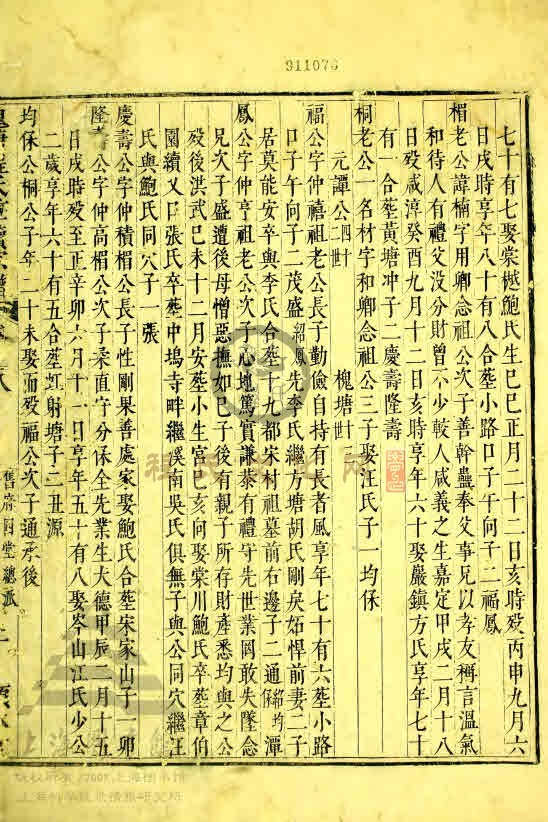 911076
七十有七娶棠樾鮑氏生巳巳正月二十二日亥時殁丙申九月六
日戌時享年八十有八合塟小路口子午向子二福鳳
楣老公諱楠字用卿念祖公次子善幹蠱奉父事兄以孝友稱言溫氣
和待人有禮父没分財曾不少較人咸義之生嘉定甲戌二月十八
日殁咸淳癸酉九月十二日亥時享年六十娶嚴鎮方氏享年七十
有一合塟黃塘冲子二慶壽隆壽
桐老公一名材字和卿念祖公三子娶汪氏子一均保
元譚公四十二世 槐塘 世
福公字仲禧祖老公長子勤儉自持有長者風享年七十有六塟小路
口子午向子二茂盛紹鳳先李氏繼方塘胡氏剛戾妬悍前妻二子
居莫能安卒與李氏合塟十九都宋村祖墓前右邊子二通保 潭
鳳公字仲亨祖老公次子心地篤實謙恭有禮守先世業罔敢失墜念
兄次子盛遭後母憎惡撫如已子後有親子所存財產悉均與之公
殁後洪武巳未十二月安塟小生宮巳亥向娶棠川鮑氏卒塟章伯
園續又口張氏卒塟中塢寺畔繼溪南吳氏俱無子與公同穴繼汪
氏與鮑氏同穴子一張
慶壽公字仲積楣公長子性剛果善處家娶鮑氏合塟宋家山子一卯
隆壽公字仲高楣公次子柔直守分保全先業生大德甲辰二月十五
日戌時殁至正辛卯六月十一日享年五十有八娶岑山江氏少公
二歲享年六十有五合塟虹射塘子二丑源
均保公桐公子年二十未娶而殁福公次子通承後
舊府四堂總派